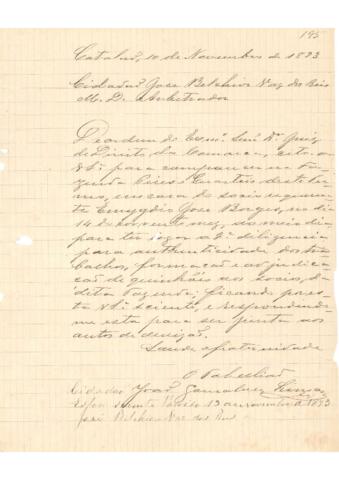 195
Catalão, 10 de Novembro de 1893
Cidadão Jose Belchior Vaz dos Reis
M. D. Arbitrador
De ordem do Exmo. Senr. Dr. Juiz
de Direito da Comarca, cito a
V. Sª. para comparecer na Fa-
zenda Cisco Quarteis deste ter-
mo, em casa do socio requeren-
te Emygdio Jose Borges, no dia
14 de novembro, ao meio dia
para ter logar a 2ª diligencia
para authenticidade dos tra-
balhos, formação e adjudica-
ção de quinhões aos socios, da
dita Fazenda, ficando por es-
ta V. Sª. sciente, e respondendo-
me esta para ser junta aos
autos de divisão.
Saude e fraternidade
O Tabelião
Cidadão João Gonsalves
sciente 13 de novembro de 1893
José Belchior Vaz dos Reis